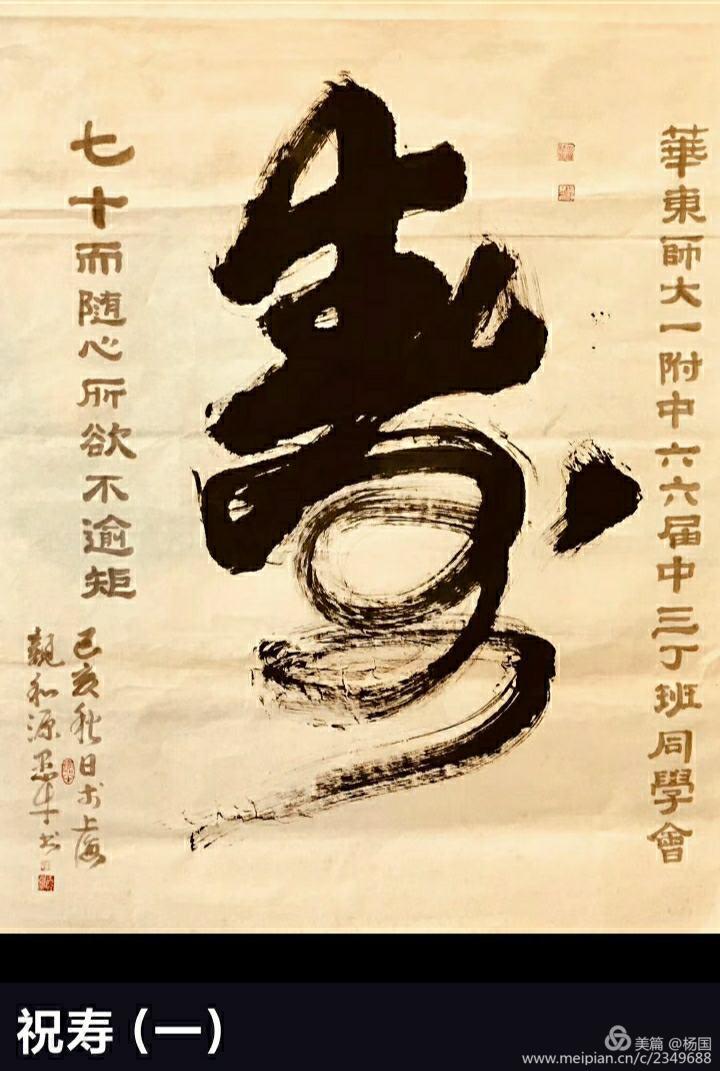 華東師大一附中六六届中三丁班同學會
壽
七十而随心所欲不逾矩
己亥秋日於上海
和源
祝寿（一）
美篇 @杨国
www.meipian.cn/c/2349688